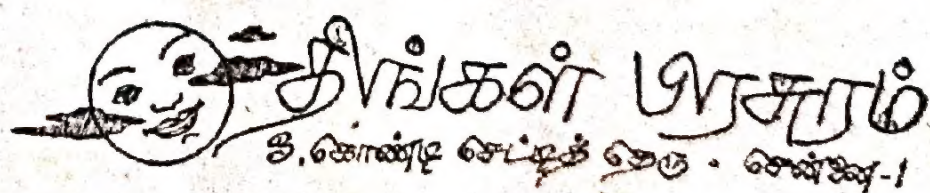 திங்கள் பிரசுரம்
3, கொண்டி செட்டித் தெரு . சென்னை-1